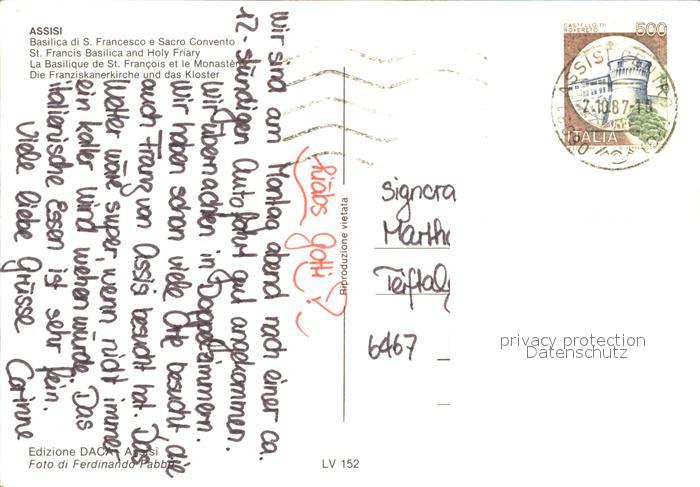 ASSISI
Basilica di S. Francesco e Sacro Convento
St. Francis Basilica and Holy Friary
La Basilique de St. François et le Monastère
Die Franziskanerkirche und das Kloster
Wir sind am Montag abend nach einer ca.
12-stündigen Autofahrt gut angekommen.
Wir übernachten in Doppelzimmern.
Wir haben schon viele Orte besucht die
auch Franz von Assisi besucht hat. Das
Wetter wäre super, wenn nicht immer
ein kalter Wind wehen würde. Das
italienische Essen ist sehr fein.
Viele liebe Grüsse Corinne
liäbs Gotti!
Riproduzione vietata
CASTELLO DI
ROVERETO
500
ITALIA
ASSISI
2.10.87
Signora
Marth
6467
privacy protection
Datenschutz
Edizione DACA - Assisi
Foto di Ferdinando Fabbri
LV 152